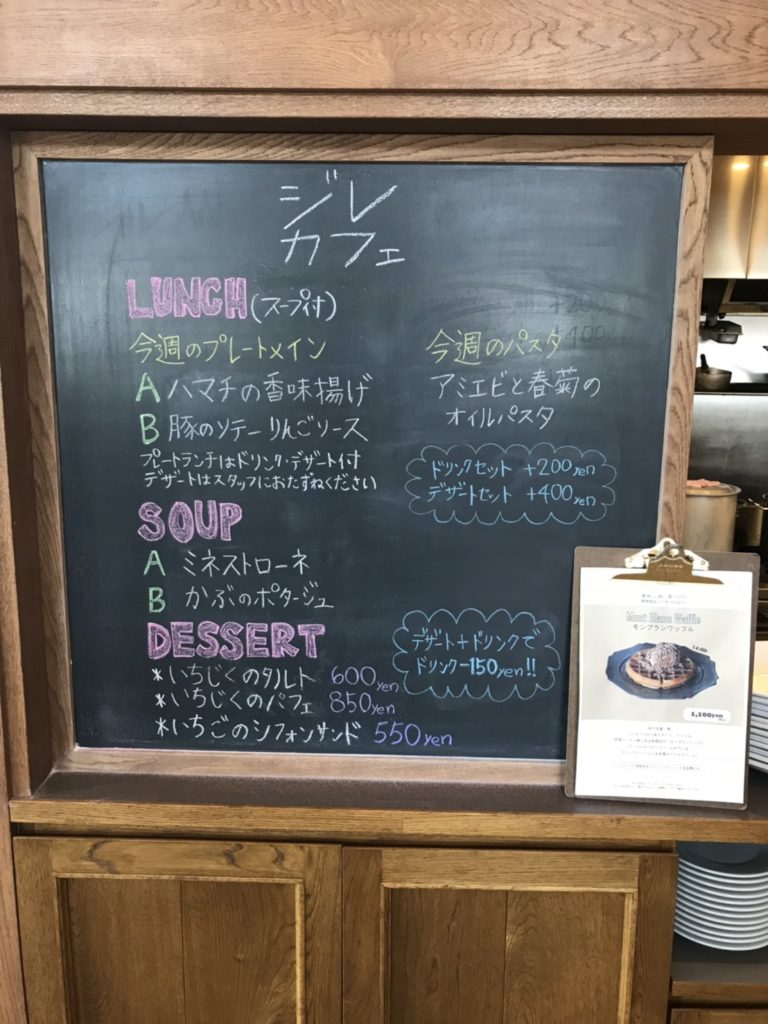 ジレ
カフェ
LUNCH (スープ付)
今週のプレートメイン
A ハマチの香味揚げ
B 豚のソテーりんごソース
プレートランチはドリンク・デザート付
デザートはスタッフにおたずねください
今週のパスタ
アミエビと春菊の
オイルパスタ
ドリンクセット +200yen
デザートセット +400yen
SOUP
A ミネストローネ
B かぶのポタージュ
DESSERT
*いちじくのタルト 600yen
*いちじくのパフェ 850yen
*いちごのシフォンサンド 550yen
デザート+ドリンクで
ドリンクー150yen!!
Mont Blanc Waffle
モンブランワッフル
1,100yen